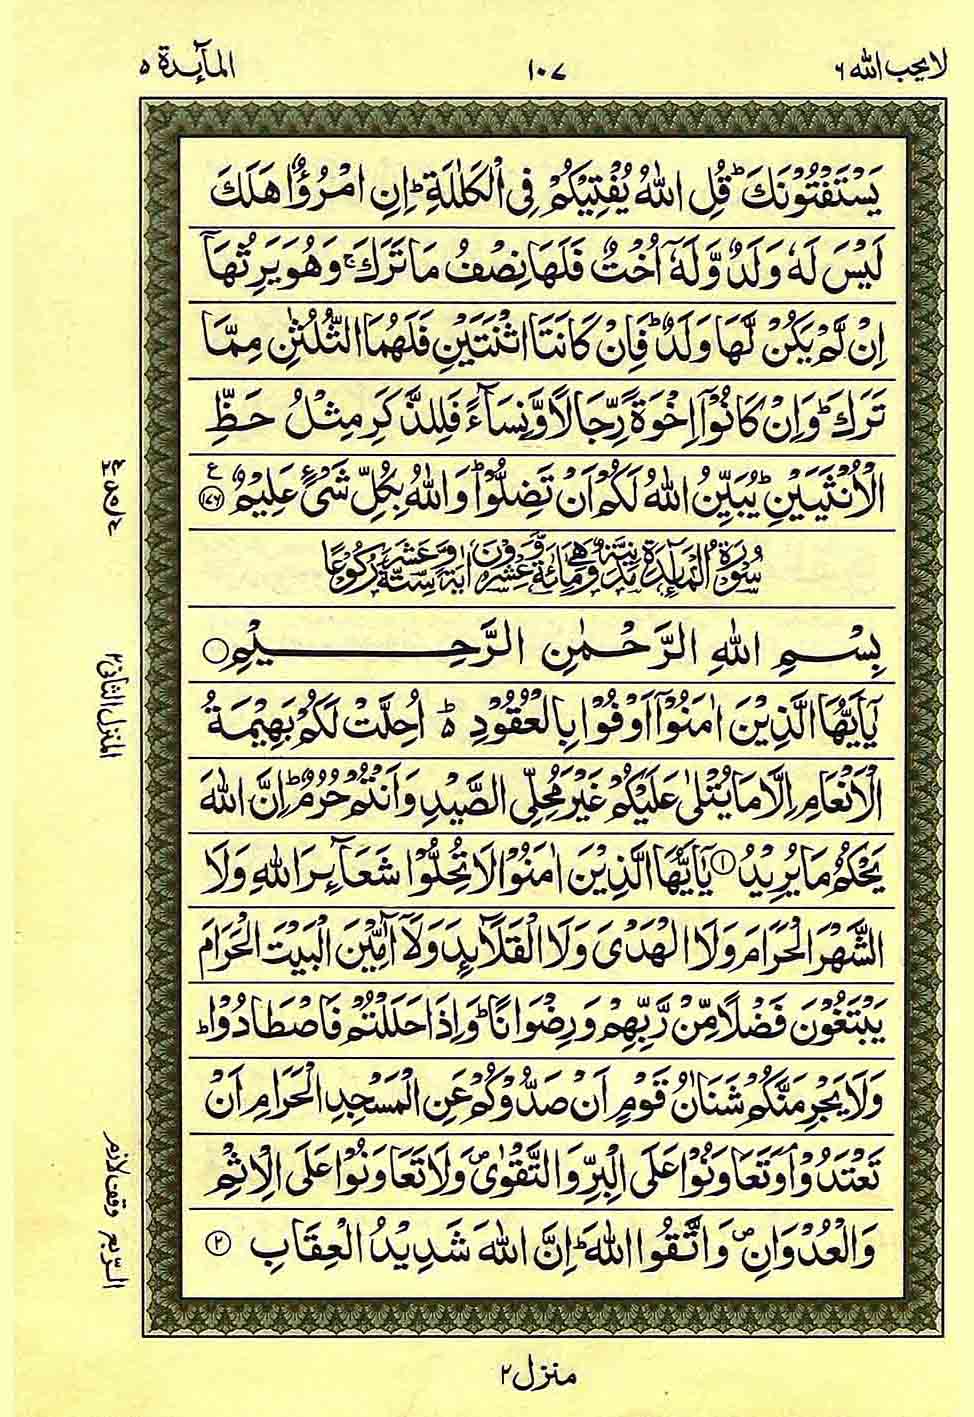 لا يحب الله ٦
١٠٧
المآئدة ٥
يَسْتَفْتُوْنَكَ ؕ قُلِ اللّٰهُ يُفْتِيْكُمْ فِى الْكَلٰلَةِ ؕ اِنِ امْرُؤٌا هَلَكَ
لَيْسَ لَهٗ وَلَدٌ وَّلَهٗۤ اُخْتٌ فَلَهَا نِصْفُ مَا تَرَكَ ۚ وَهُوَ يَرِثُهَاۤ
اِنْ لَّمْ يَكُنْ لَّهَا وَلَدٌ ؕ فَاِنْ كَانَتَا اثْنَتَيْنِ فَلَهُمَا الثُّلُثٰنِ مِمَّا
تَرَكَ ؕ وَاِنْ كَانُوْۤا اِخْوَةً رِّجَالًا وَّنِسَآءً فَلِلذَّكَرِ مِثْلُ حَظِّ
الْاُنْثَيَيْنِ ؕ يُبَيِّنُ اللّٰهُ لَكُمْ اَنْ تَضِلُّوْا ؕ وَاللّٰهُ بِكُلِّ شَىْءٍ عَلِيْمٌ ۧ ﴿١٧٦﴾
سُوْرَةُ الْمَآئِدَةِ مَدَنِيَّةٌ وَّهِىَ مِائَةٌ وَّعِشْرُوْنَ اٰيَةً وَّسِتَّةَ عَشَرَ رُكُوْعًا
بِسْمِ اللّٰهِ الرَّحْمٰنِ الرَّحِيْمِ ○
يٰۤاَيُّهَا الَّذِيْنَ اٰمَنُوْۤا اَوْفُوْا بِالْعُقُوْدِ ؕ اُحِلَّتْ لَكُمْ بَهِيْمَةُ
الْاَنْعَامِ اِلَّا مَا يُتْلٰى عَلَيْكُمْ غَيْرَ مُحِلِّى الصَّيْدِ وَاَنْتُمْ حُرُمٌ ؕ اِنَّ اللّٰهَ
يَحْكُمُ مَا يُرِيْدُ ﴿١﴾ يٰۤاَيُّهَا الَّذِيْنَ اٰمَنُوْا لَا تُحِلُّوْا شَعَآئِرَ اللّٰهِ وَلَا
الشَّهْرَ الْحَرَامَ وَلَا الْهَدْىَ وَلَا الْقَلَآئِدَ وَلَاۤ اٰۤمِّيْنَ الْبَيْتَ الْحَرَامَ
يَبْتَغُوْنَ فَضْلًا مِّنْ رَّبِّهِمْ وَرِضْوَانًا ؕ وَاِذَا حَلَلْتُمْ فَاصْطَادُوْا ؕ
وَلَا يَجْرِمَنَّكُمْ شَنَاٰنُ قَوْمٍ اَنْ صَدُّوْكُمْ عَنِ الْمَسْجِدِ الْحَرَامِ اَنْ
تَعْتَدُوْا ۘ وَتَعَاوَنُوْا عَلَى الْبِرِّ وَالتَّقْوٰى ۪ وَلَا تَعَاوَنُوْا عَلَى الْاِثْمِ
وَالْعُدْوَانِ ۪ وَاتَّقُوا اللّٰهَ ؕ اِنَّ اللّٰهَ شَدِيْدُ الْعِقَابِ ﴿٢﴾
المنزل الثانى ٢
الربع
وقف لازم
منزل ٢